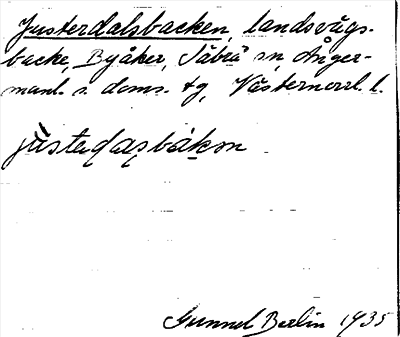 Justerdalsbacken, landsvägs-
backe, Byåker, Säbrå sn, Ånger-
manl. s. doms. tg, Västernorrl. l.
jùstaḍaṣbákɐn
Gunnel Berlin 1935